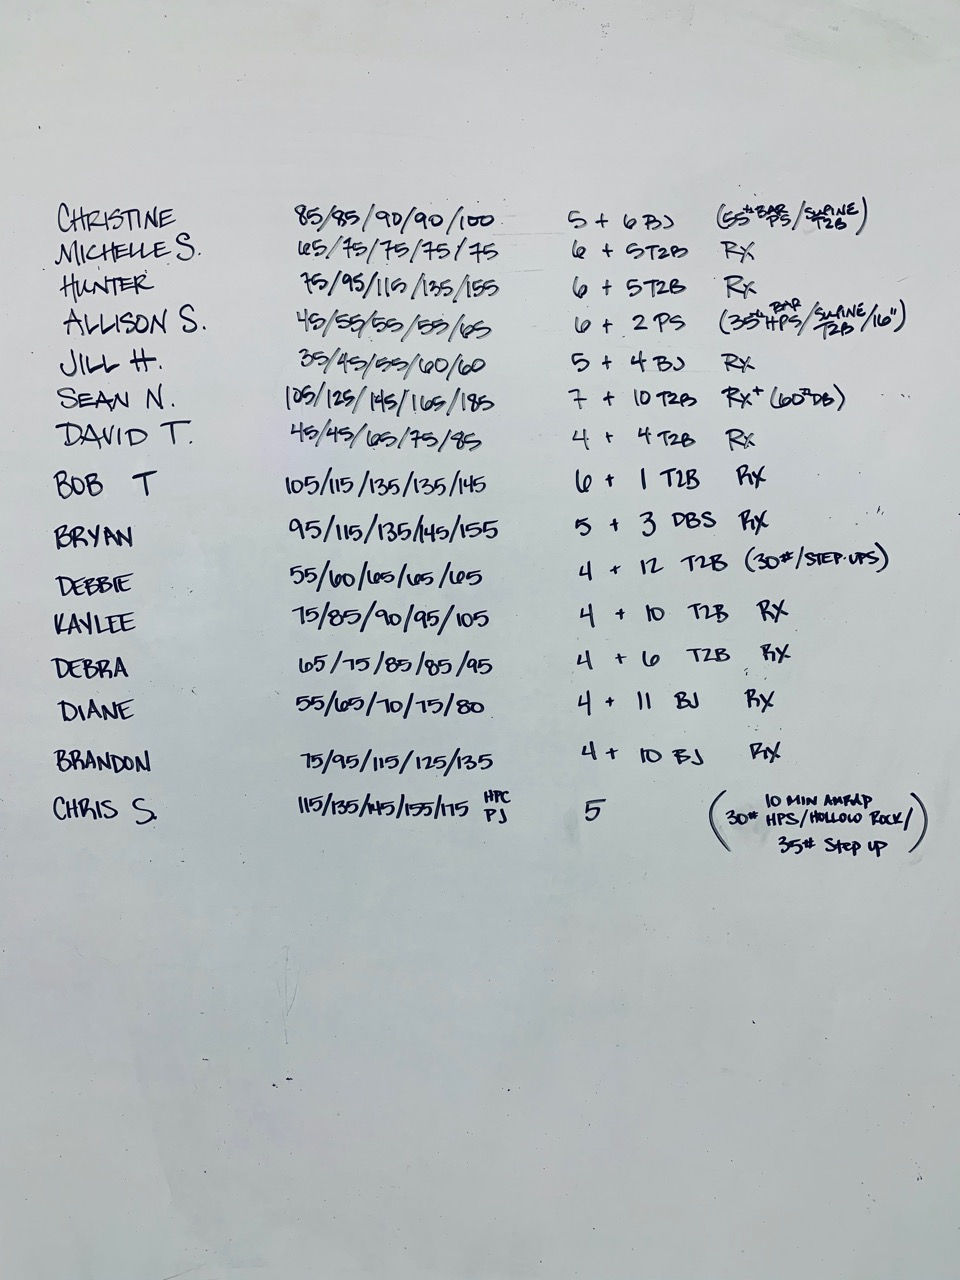 CHRISTINE 85/85/90/90/100 5 + 6 BJ (55# BAR PS/SUPINE T2B)
MICHELLE S. 65/75/75/75/75 6 + 5 T2B RX
HUNTER 75/95/115/135/155 6 + 5 T2B RX
ALLISON S. 45/55/55/55/65 6 + 2 PS (35# BAR HPS/SUPINE T2B/16")
JILL H. 35/45/55/60/60 5 + 4 BJ RX
SEAN N. 105/125/145/165/185 7 + 10 T2B RX+ (60# DB)
DAVID T. 45/45/65/75/85 4 + 4 T2B RX
BOB T 105/115/135/135/145 6 + 1 T2B RX
BRYAN 95/115/135/145/155 5 + 3 DBS RX
DEBBIE 55/60/65/65/65 4 + 12 T2B (30#/STEP-UPS)
KAYLEE 75/85/90/95/105 4 + 10 T2B RX
DEBRA 65/75/85/85/95 4 + 6 T2B RX
DIANE 55/65/70/75/80 4 + 11 BJ RX
BRANDON 75/95/115/125/135 4 + 10 BJ RX
CHRIS S. 115/135/145/155/175 HPC PJ 5 (10 MIN AMRAP
30# HPS/HOLLOW ROCK/
35# STEP UP)